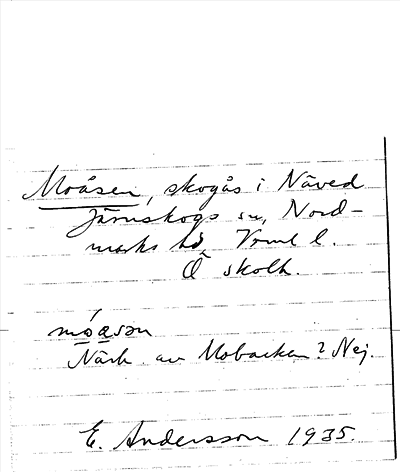 Moåsen, skogås i Näved
Järnskogs sn, Nord-
marks hd, Vrml l.
Ö skolh.
móåsən
Närh. av Mobacken? Nej.
E. Andersson 1935.